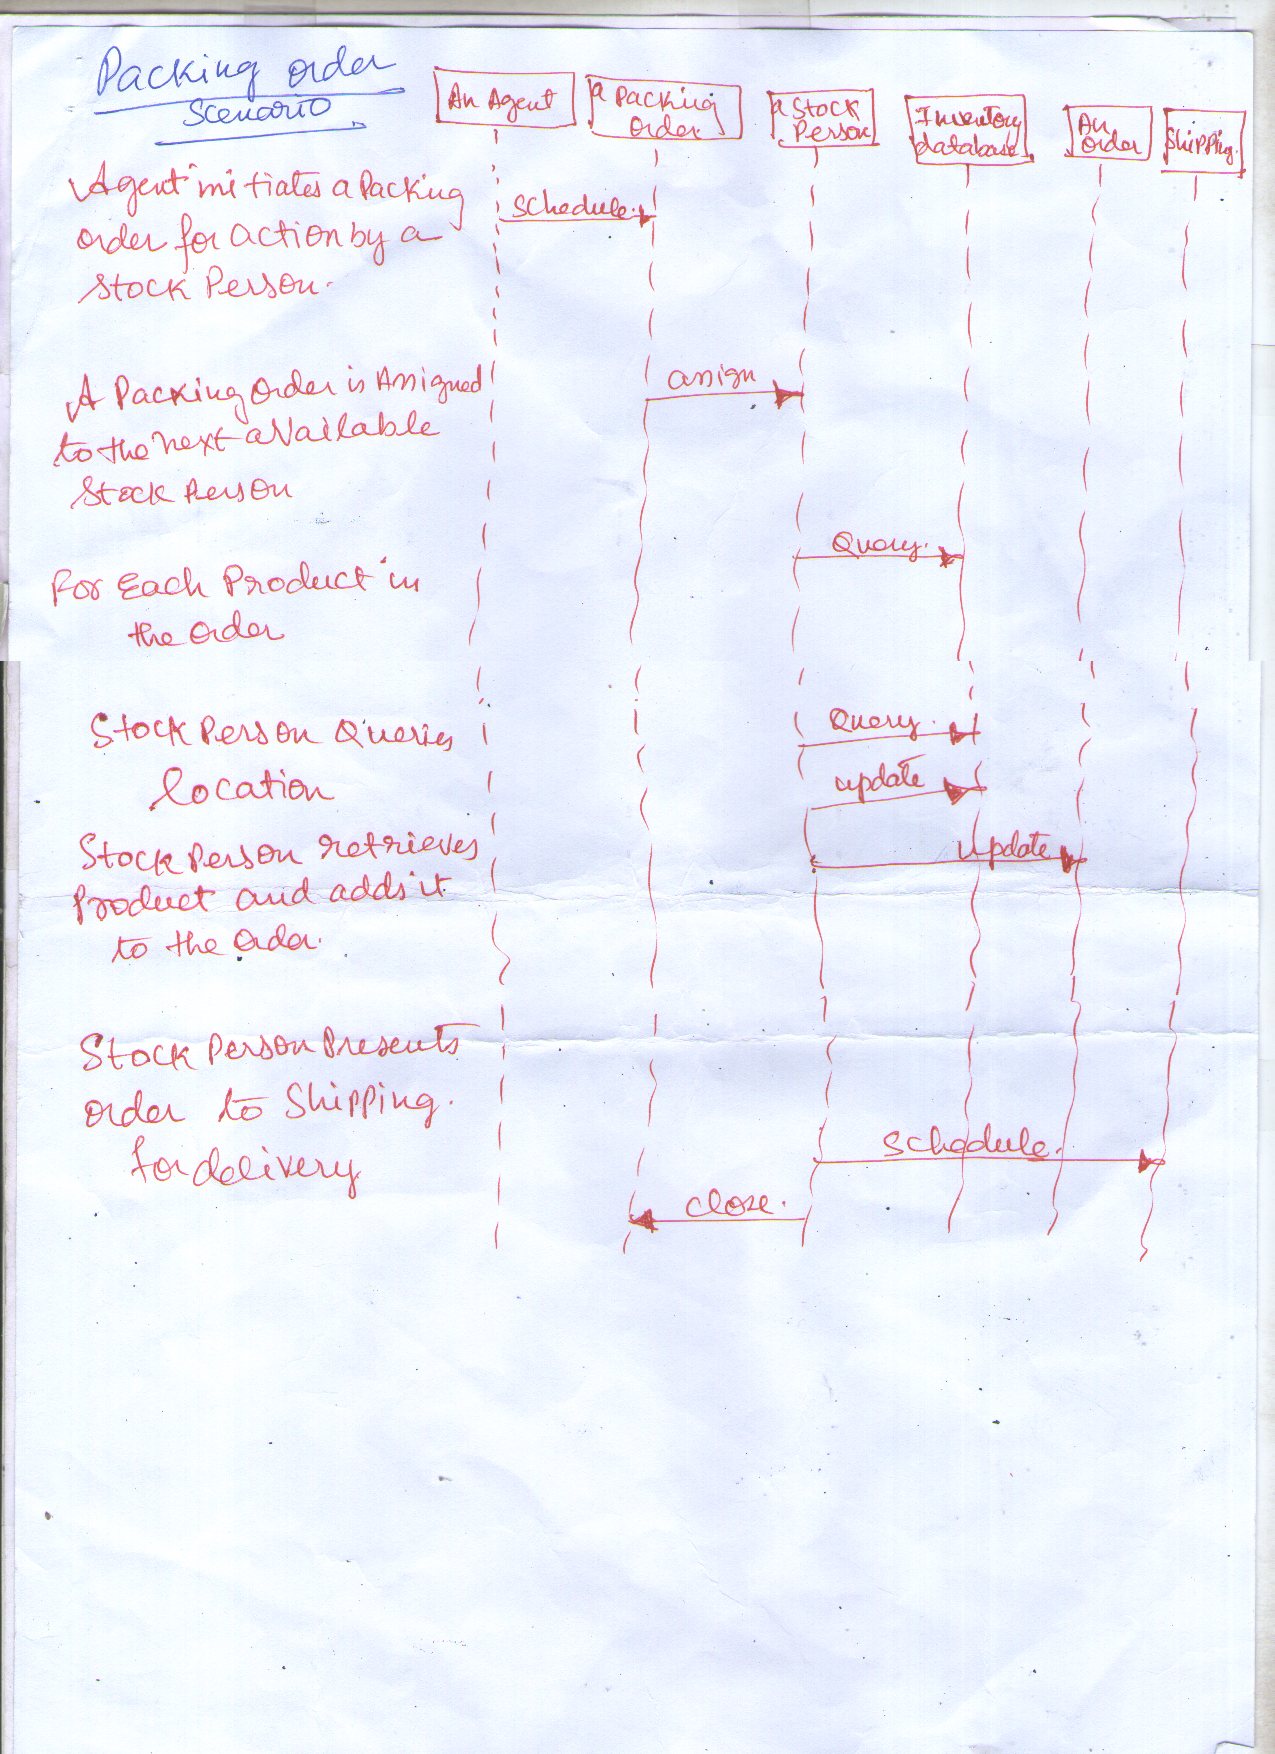 Packing order
Scenario
An Agent
a Packing
Order
a Stock
Person
Inventory
database
An
order
Shipping.
Agent initiates a Packing
order for action by a
Stock Person.
Schedule.
A Packing Order is Assigned
to the next available
Stock Person
assign
Query.
For Each Product in
the order
Stock Person Queries
location
Query.
update
Stock Person retrieves
Product and adds it
to the order.
update
Stock Person Presents
order to Shipping.
for delivery
Schedule.
Close.